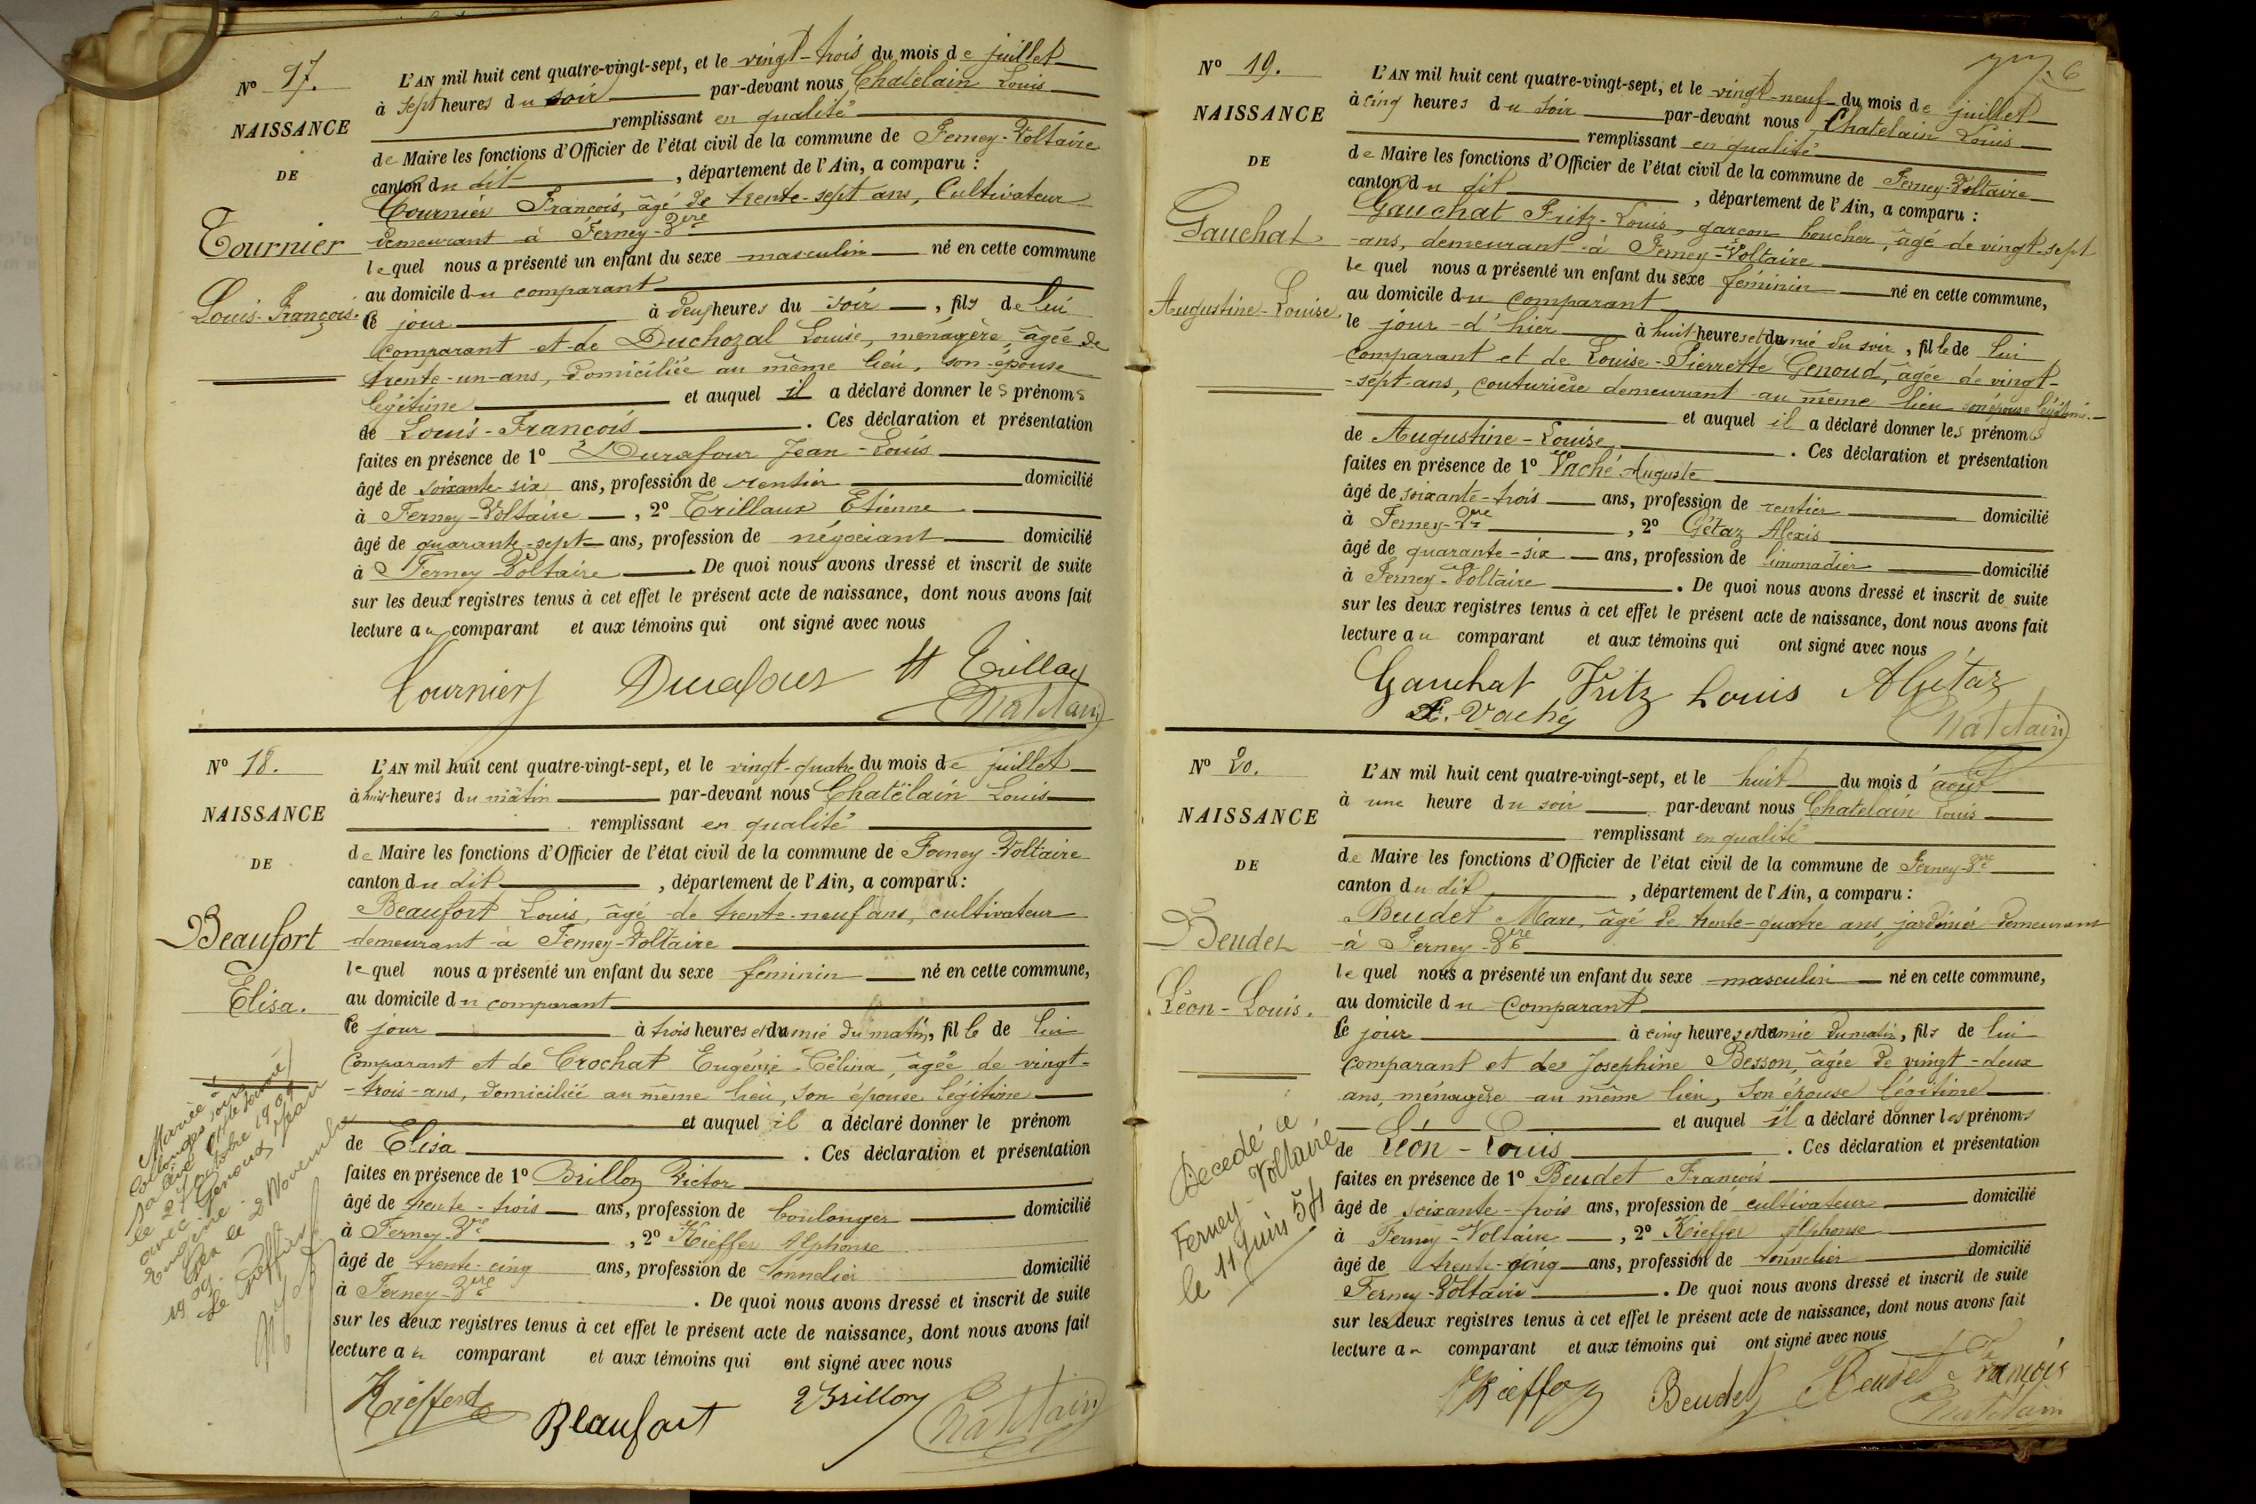 N° 17.
NAISSANCE
DE
Tournier
Louis-François.
L'AN mil huit cent quatre-vingt-sept, et le vingt-trois du mois de juillet
à sept heures du soir par-devant nous Chatelain Louis
remplissant en qualité
de Maire les fonctions d'Officier de l'état civil de la commune de Ferney-Voltaire
canton du dit, département de l'Ain, a comparu :
Tournier François, âgé de trente-sept ans, Cultivateur
demeurant à Ferney-Vre
lequel nous a présenté un enfant du sexe masculin né en cette commune
au domicile du comparant
ce jour à deux heures du soir, fils de lui
comparant et de Duchozal Louise, ménagère, âgée de
trente-un-ans, domiciliée au même lieu, son épouse
légitime et auquel il a déclaré donner les prénoms
de Louis-François. Ces déclaration et présentation
faites en présence de 1° Durafour Jean-Louis
âgé de soixante-six ans, profession de rentier domicilié
à Ferney-Voltaire, 2° Trillaux Etienne
âgé de quarante-sept ans, profession de négociant domicilié
à Ferney-Voltaire. De quoi nous avons dressé et inscrit de suite
sur les deux registres tenus à cet effet le présent acte de naissance, dont nous avons fait
lecture au comparant et aux témoins qui ont signé avec nous
Tournier Durafour Trillax
Chatelain
N° 18.
NAISSANCE
DE
Beaufort
Elisa.
Mariée à
Collonges
le 27 octobre 1909
avec Genoux Jean
Eugène.
le 2 Novembre
1909.
Le Greffier
L'AN mil huit cent quatre-vingt-sept, et le vingt-quatre du mois de juillet
à huit heures du matin par-devant nous Chatelain Louis
remplissant en qualité
de Maire les fonctions d'Officier de l'état civil de la commune de Ferney-Voltaire
canton du dit, département de l'Ain, a comparu :
Beaufort Louis, âgé de trente-neuf ans, cultivateur
demeurant à Ferney-Voltaire
lequel nous a présenté un enfant du sexe féminin né en cette commune,
au domicile du comparant
ce jour à trois heures et demie du matin, fille de lui
comparant et de Crochat Eugénie-Célina, âgée de vingt-
-trois-ans, domiciliée au même lieu, son épouse légitime
et auquel il a déclaré donner le prénom
de Elisa. Ces déclaration et présentation
faites en présence de 1° Brillon Victor
âgé de trente-trois ans, profession de boulanger domicilié
à Ferney-Vre, 2° Kieffer Alphonse
âgé de trente-cinq ans, profession de tonnelier domicilié
à Ferney-Vre. De quoi nous avons dressé et inscrit de suite
sur les deux registres tenus à cet effet le présent acte de naissance, dont nous avons fait
lecture au comparant et aux témoins qui ont signé avec nous
Kieffer Beaufort VBrillon Chatelain
6
N° 19.
NAISSANCE
DE
Gauchat
Augustine-Louise.
L'AN mil huit cent quatre-vingt-sept, et le vingt-neuf du mois de juillet
à cinq heures du soir par-devant nous Chatelain Louis
remplissant en qualité
de Maire les fonctions d'Officier de l'état civil de la commune de Ferney-Voltaire
canton du dit, département de l'Ain, a comparu :
Gauchat Fritz-Louis, garçon boucher, âgé de vingt-sept
-ans, demeurant à Ferney-Voltaire
lequel nous a présenté un enfant du sexe féminin né en cette commune,
au domicile du comparant
le jour-d'hier à huit heures et demie du soir, fille de lui
comparant et de Louise-Pierrette Genoud, âgée de vingt-
-sept-ans, couturière demeurant au même lieu son épouse légitime.
et auquel il a déclaré donner les prénoms
de Augustine-Louise. Ces déclaration et présentation
faites en présence de 1° Vaché Auguste
âgé de soixante-trois ans, profession de rentier domicilié
à Ferney-Vre, 2° Gétaz Alexis
âgé de quarante-six ans, profession de limonadier domicilié
à Ferney-Voltaire. De quoi nous avons dressé et inscrit de suite
sur les deux registres tenus à cet effet le présent acte de naissance, dont nous avons fait
lecture au comparant et aux témoins qui ont signé avec nous
Gauchat Fritz Louis AGétaz
A. Vaché Chatelain
N° 20.
NAISSANCE
DE
Beudet
Léon-Louis.
Decedé à
Ferney-Voltaire
le 11 Juin 54
L'AN mil huit cent quatre-vingt-sept, et le huit du mois d'août
à une heure du soir par-devant nous Chatelain Louis
remplissant en qualité
de Maire les fonctions d'Officier de l'état civil de la commune de Ferney-Vre
canton du dit, département de l'Ain, a comparu :
Beudet Marc, âgé de trente-quatre ans, jardinier demeurant
-à Ferney-Vre
lequel nous a présenté un enfant du sexe masculin né en cette commune,
au domicile du Comparant
ce jour à cinq heures et demie du matin, fils de lui
comparant et de Josephine Besson, âgée de vingt-deux
ans, ménagère au même lieu, son épouse légitime
et auquel il a déclaré donner les prénoms
de Léon-Louis. Ces déclaration et présentation
faites en présence de 1° Beudet François
âgé de soixante-trois ans, profession de cultivateur domicilié
à Ferney-Voltaire, 2° Kieffer Alphonse
âgé de trente-cinq ans, profession de tonnelier domicilié
Ferney-Voltaire. De quoi nous avons dressé et inscrit de suite
sur les deux registres tenus à cet effet le présent acte de naissance, dont nous avons fait
lecture au comparant et aux témoins qui ont signé avec nous
Kieffer Beudet Beudet François
Chatelain